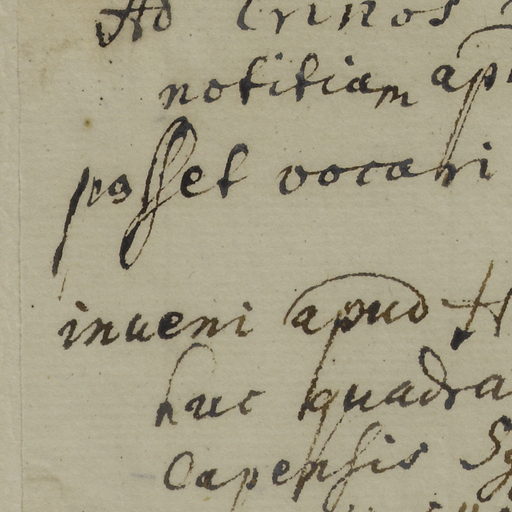 Ad Crinos
notitiam ap
posset vocari
inveni apud H
huc quadra
Capensis Sy